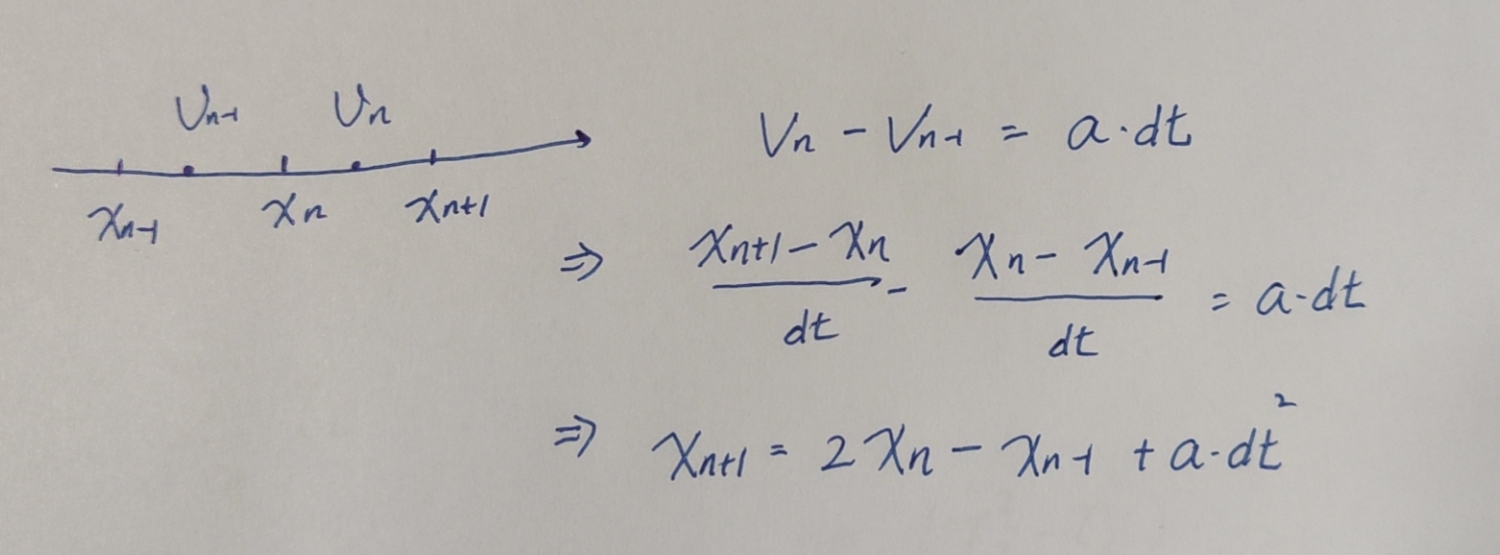 Vn-1 Vn
xn-1 xn xn+1
Vn - Vn-1 = a·dt
⇒ (xn+1 - xn)/dt - (xn - xn-1)/dt = a·dt
⇒ xn+1 = 2xn - xn-1 + a·dt²